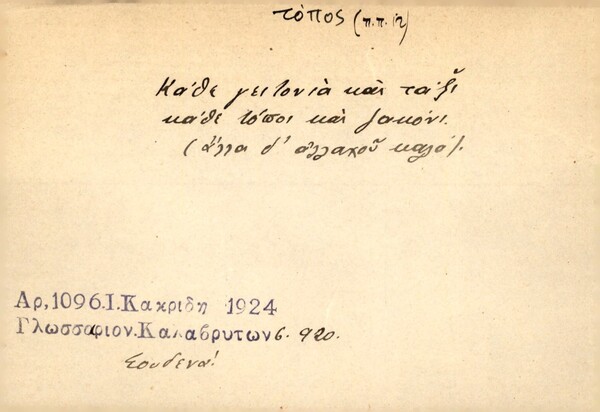 τόπος (π.π. 12)
Κάθε γειτονιὰ καὶ τάξι
κάθε τόποι καὶ ζακόνι.
(ἄλλα δ' ἀλλαχοῦ καλά).
Αρ,1096.Ι.Κακριδη 1924
Γλωσσαριον.Καλαβρυτων σ. 920.
Σουδενά!